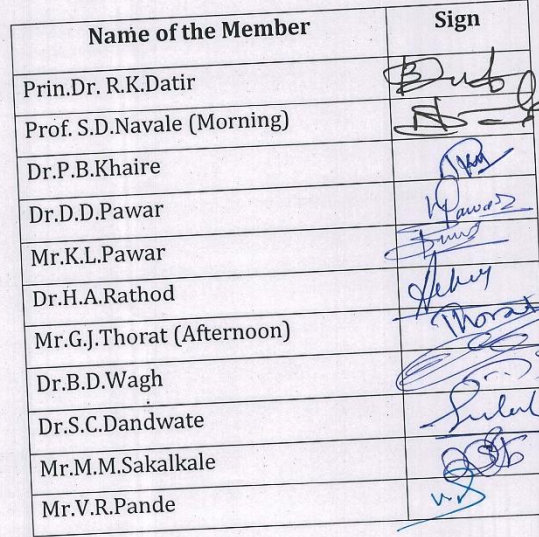 Name of the Member Sign
Prin.Dr. R.K.Datir
Prof. S.D.Navale (Morning)
Dr.P.B.Khaire
Dr.D.D.Pawar Pawar
Mr.K.L.Pawar
Dr.H.A.Rathod
Mr.G.J.Thorat (Afternoon) Thorat
Dr.B.D.Wagh
Dr.S.C.Dandwate
Mr.M.M.Sakalkale
Mr.V.R.Pande